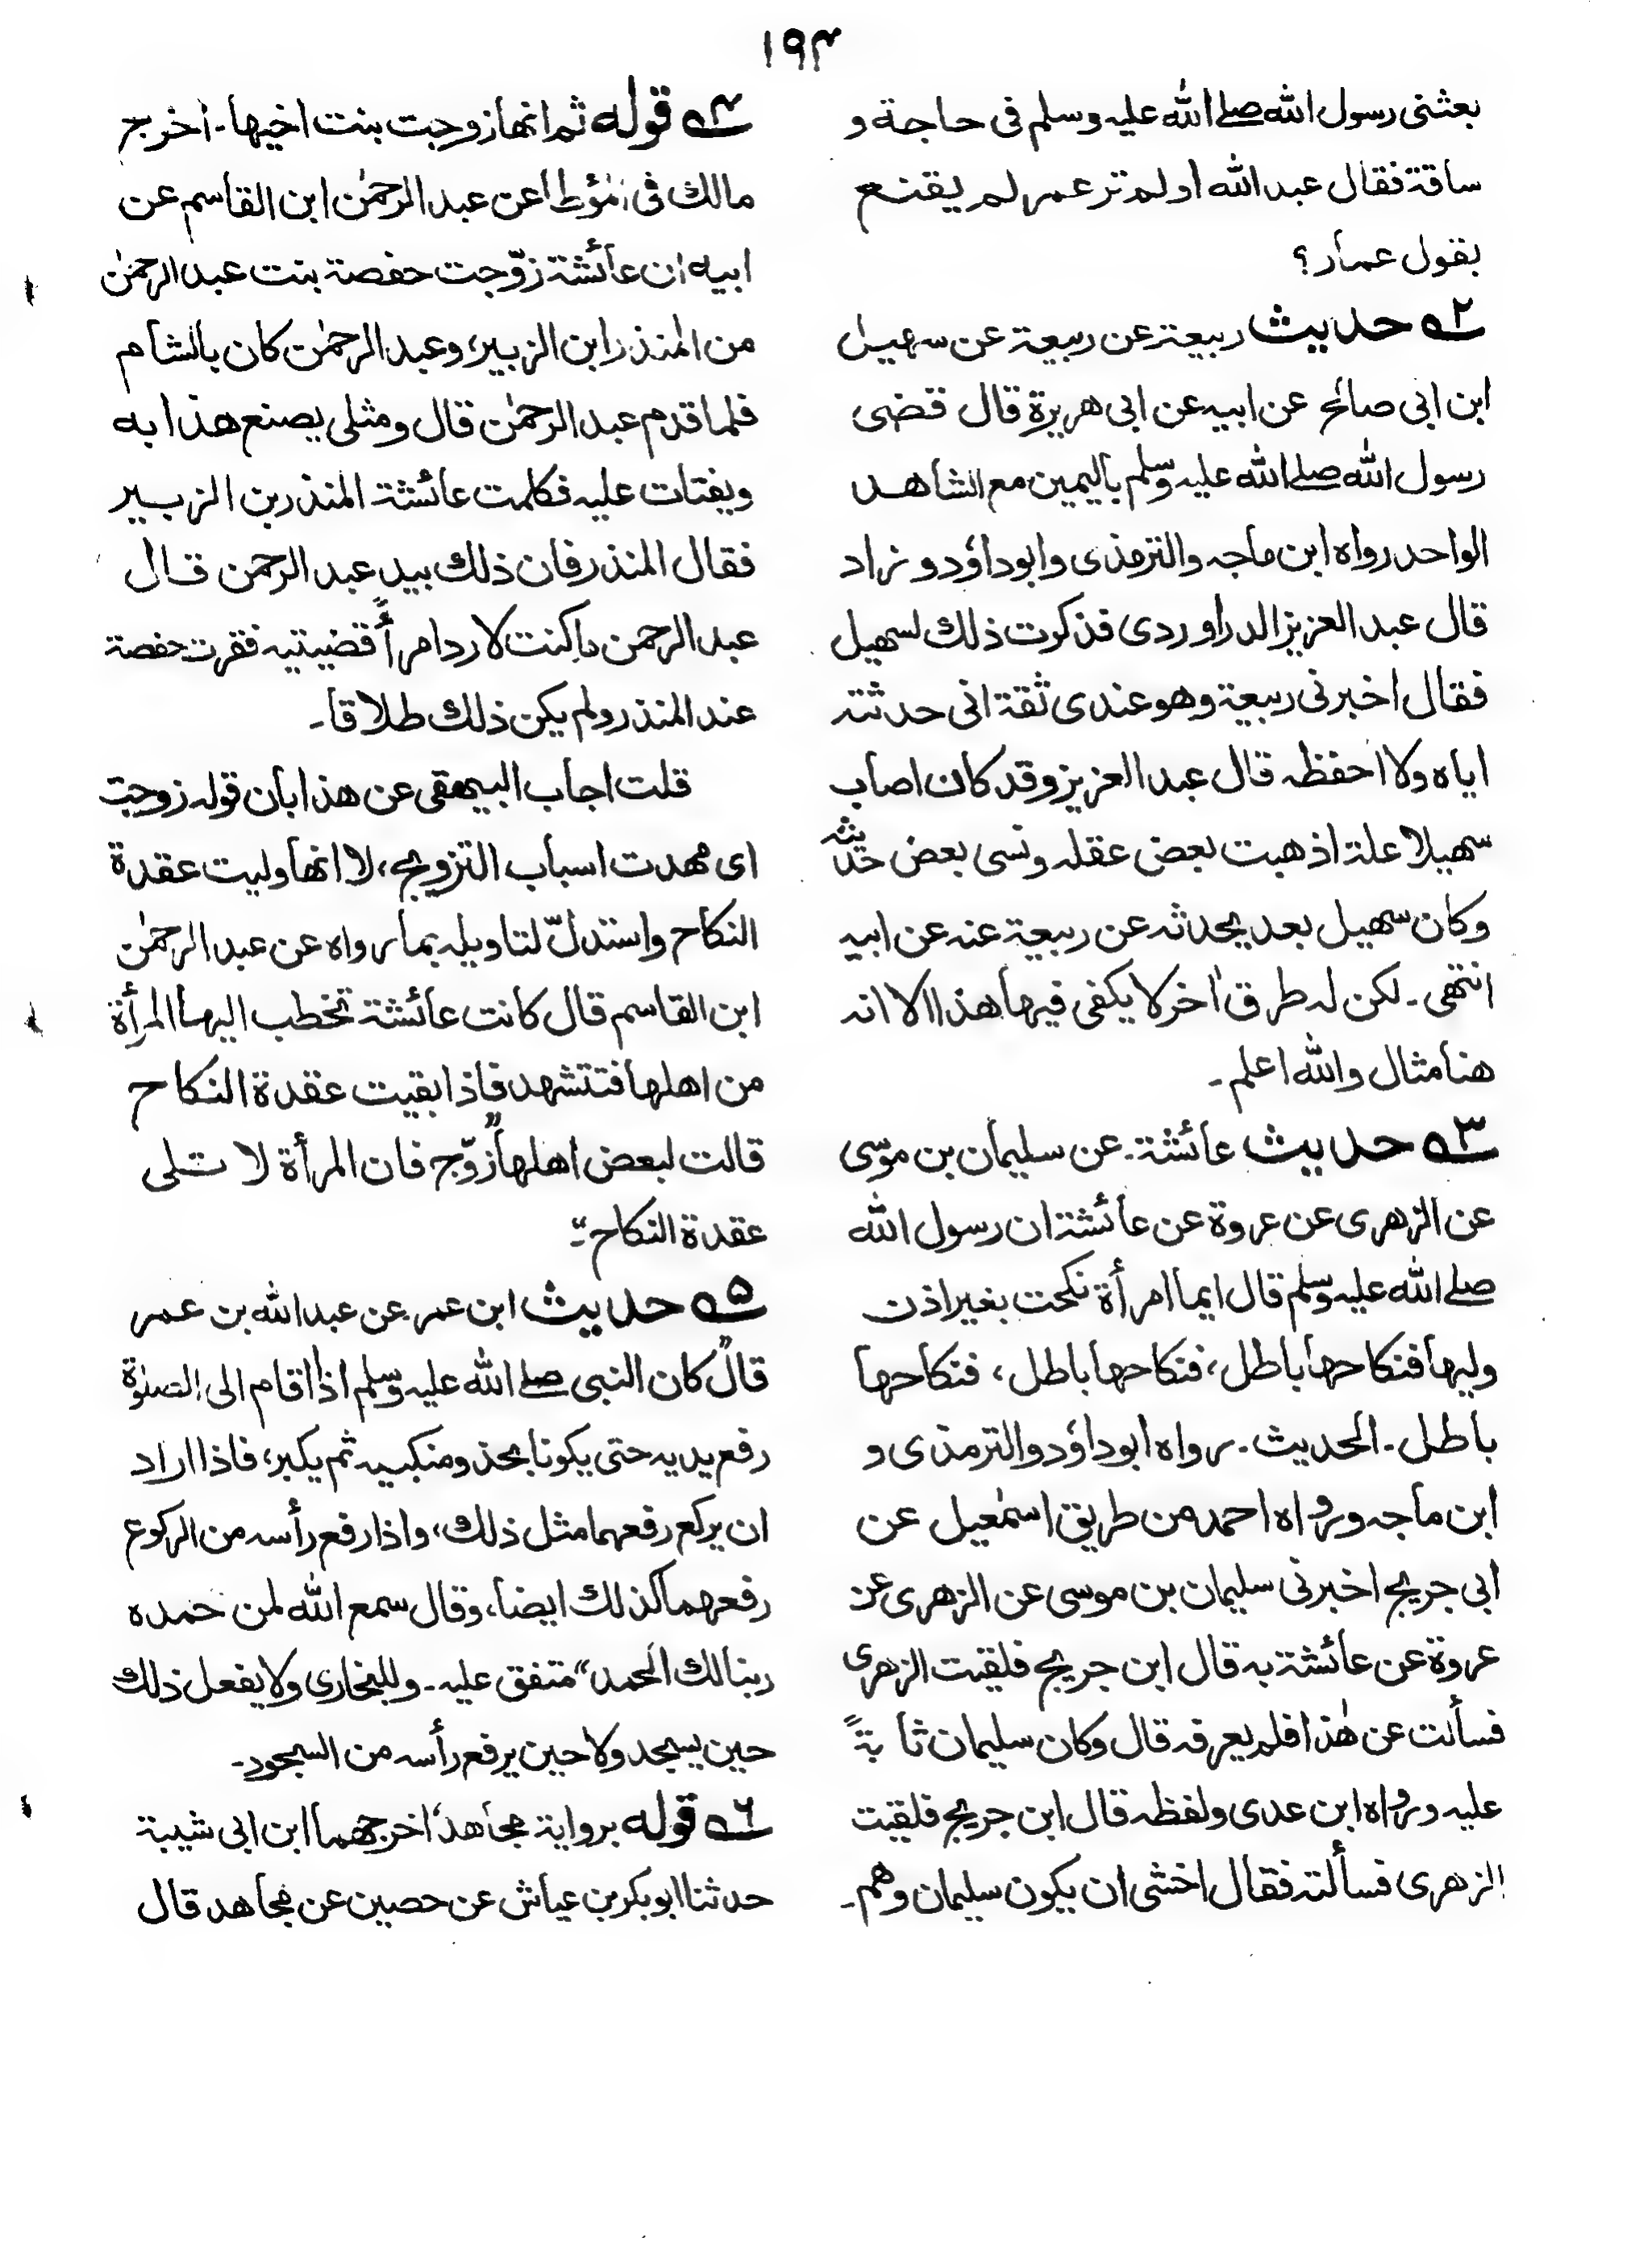 ۱۹۴
بعثنی رسول الله صلے الله علیہ وسلم فی حاجة و
ساقة فقال عبد الله اولم تر عمر لم یقنع
بقول عمار؟
۲ه حدیث ربیعة عن ربیعة عن سهیل
ابن ابی صالح عن ابیہ عن ابی هریرة قال قضی
رسول الله صلے الله علیہ وسلم بالیمین مع الشاهد
الواحد رواہ ابن ماجہ والترمذی وابوداؤد و زاد
قال عبد العزیز الدراوردی فذکرت ذلك لسهیل
فقال اخبرنی ربیعة وهو عندی ثقة انی حدثتہ
ایاہ ولا احفظہ قال عبد العزیز وقد کان اصاب
سهیلا علة اذهبت بعض عقلہ ونسی بعض حدیثہ
وکان سهیل بعد یحدثہ عن ربیعة عنہ عن ابیہ
انتهی۔ لکن لہ طرق اٰخر لا یکفی فیها هذا الا انہ
هنا مثال والله اعلم۔
۳ه حدیث عائشة۔ عن سلیمان بن موسی
عن الزهری عن عروة عن عائشة ان رسول الله
صلے الله علیہ وسلم قال ایما امرأة نکحت بغیر اذن
ولیها فنکاحها باطل، فنکاحها باطل، فنکاحها
باطل۔ الحدیث۔ رواہ ابوداؤد والترمذی و
ابن ماجہ ورواہ احمد من طریق اسمٰعیل عن
ابی جریج اخبرنی سلیمان بن موسی عن الزهری عن
عروة عن عائشة بہ قال ابن جریج فلقیت الزهری
فسألت عن هٰذا فلم یعرفہ قال وکان سلیمان
علیہ ورواہ ابن عدی ولفظہ قال ابن جریج فلقیت
الزهری فسألتہ فقال اخشی ان یکون سلیمان وهم۔
۴ه قولہ ثم انها زوجت بنت اخیها۔ اخرج
مالك فی المؤطا عن عبد الرحمٰن ابن القاسم عن
ابیہ ان عائشة زوّجت حفصة بنت عبد الرحمٰن
من المنذر ابن الزبیر، وعبد الرحمٰن کان بالشام
فلما قدم عبد الرحمٰن قال ومثلی یصنع هذا بہ
ویفتات علیہ فکلمت عائشة المنذر بن الزبیر
فقال المنذر فان ذلك بید عبد الرحمن قال
عبد الرحمن ما کنت لارد امراً قضیتیہ فقرت حفصة
عند المنذر ولم یکن ذلك طلاقا۔
قلت اجاب البیهقی عن هذا بان قولہ زوجت
ای مهدت اسباب التزویج، لا انها ولیت عقدة
النکاح واستدلّ لتاویلہ بما رواہ عن عبد الرحمٰن
ابن القاسم قال کانت عائشة تخطب الیها المرأة
من اهلها فتتشهد فاذا بقیت عقدة النکاح
قالت لبعض اهلها ”زوّج فان المرأة لا تلی
عقدة النکاح“۔
۵ه حدیث ابن عمر عن عبد الله بن عمر
قال ”کان النبی صلے الله علیہ وسلم اذا قام الی الصلوٰة
رفع یدیہ حتی یکونا بحذو منکبیہ ثم یکبر، فاذا اراد
ان یرکع رفعهما مثل ذلك، واذا رفع رأسہ من الرکوع
رفعهما کذلك ایضا، وقال سمع الله لمن حمدہ
ربنا لك الحمد“ متفق علیہ۔ وللبخاری ولا یفعل ذلك
حین یسجد ولا حین یرفع رأسہ من السجود۔
۶ه قولہ بروایة مجاهد، اخرجهما ابن ابی شیبة
حدثنا ابوبکر بن عیاش عن حصین عن مجاهد قال